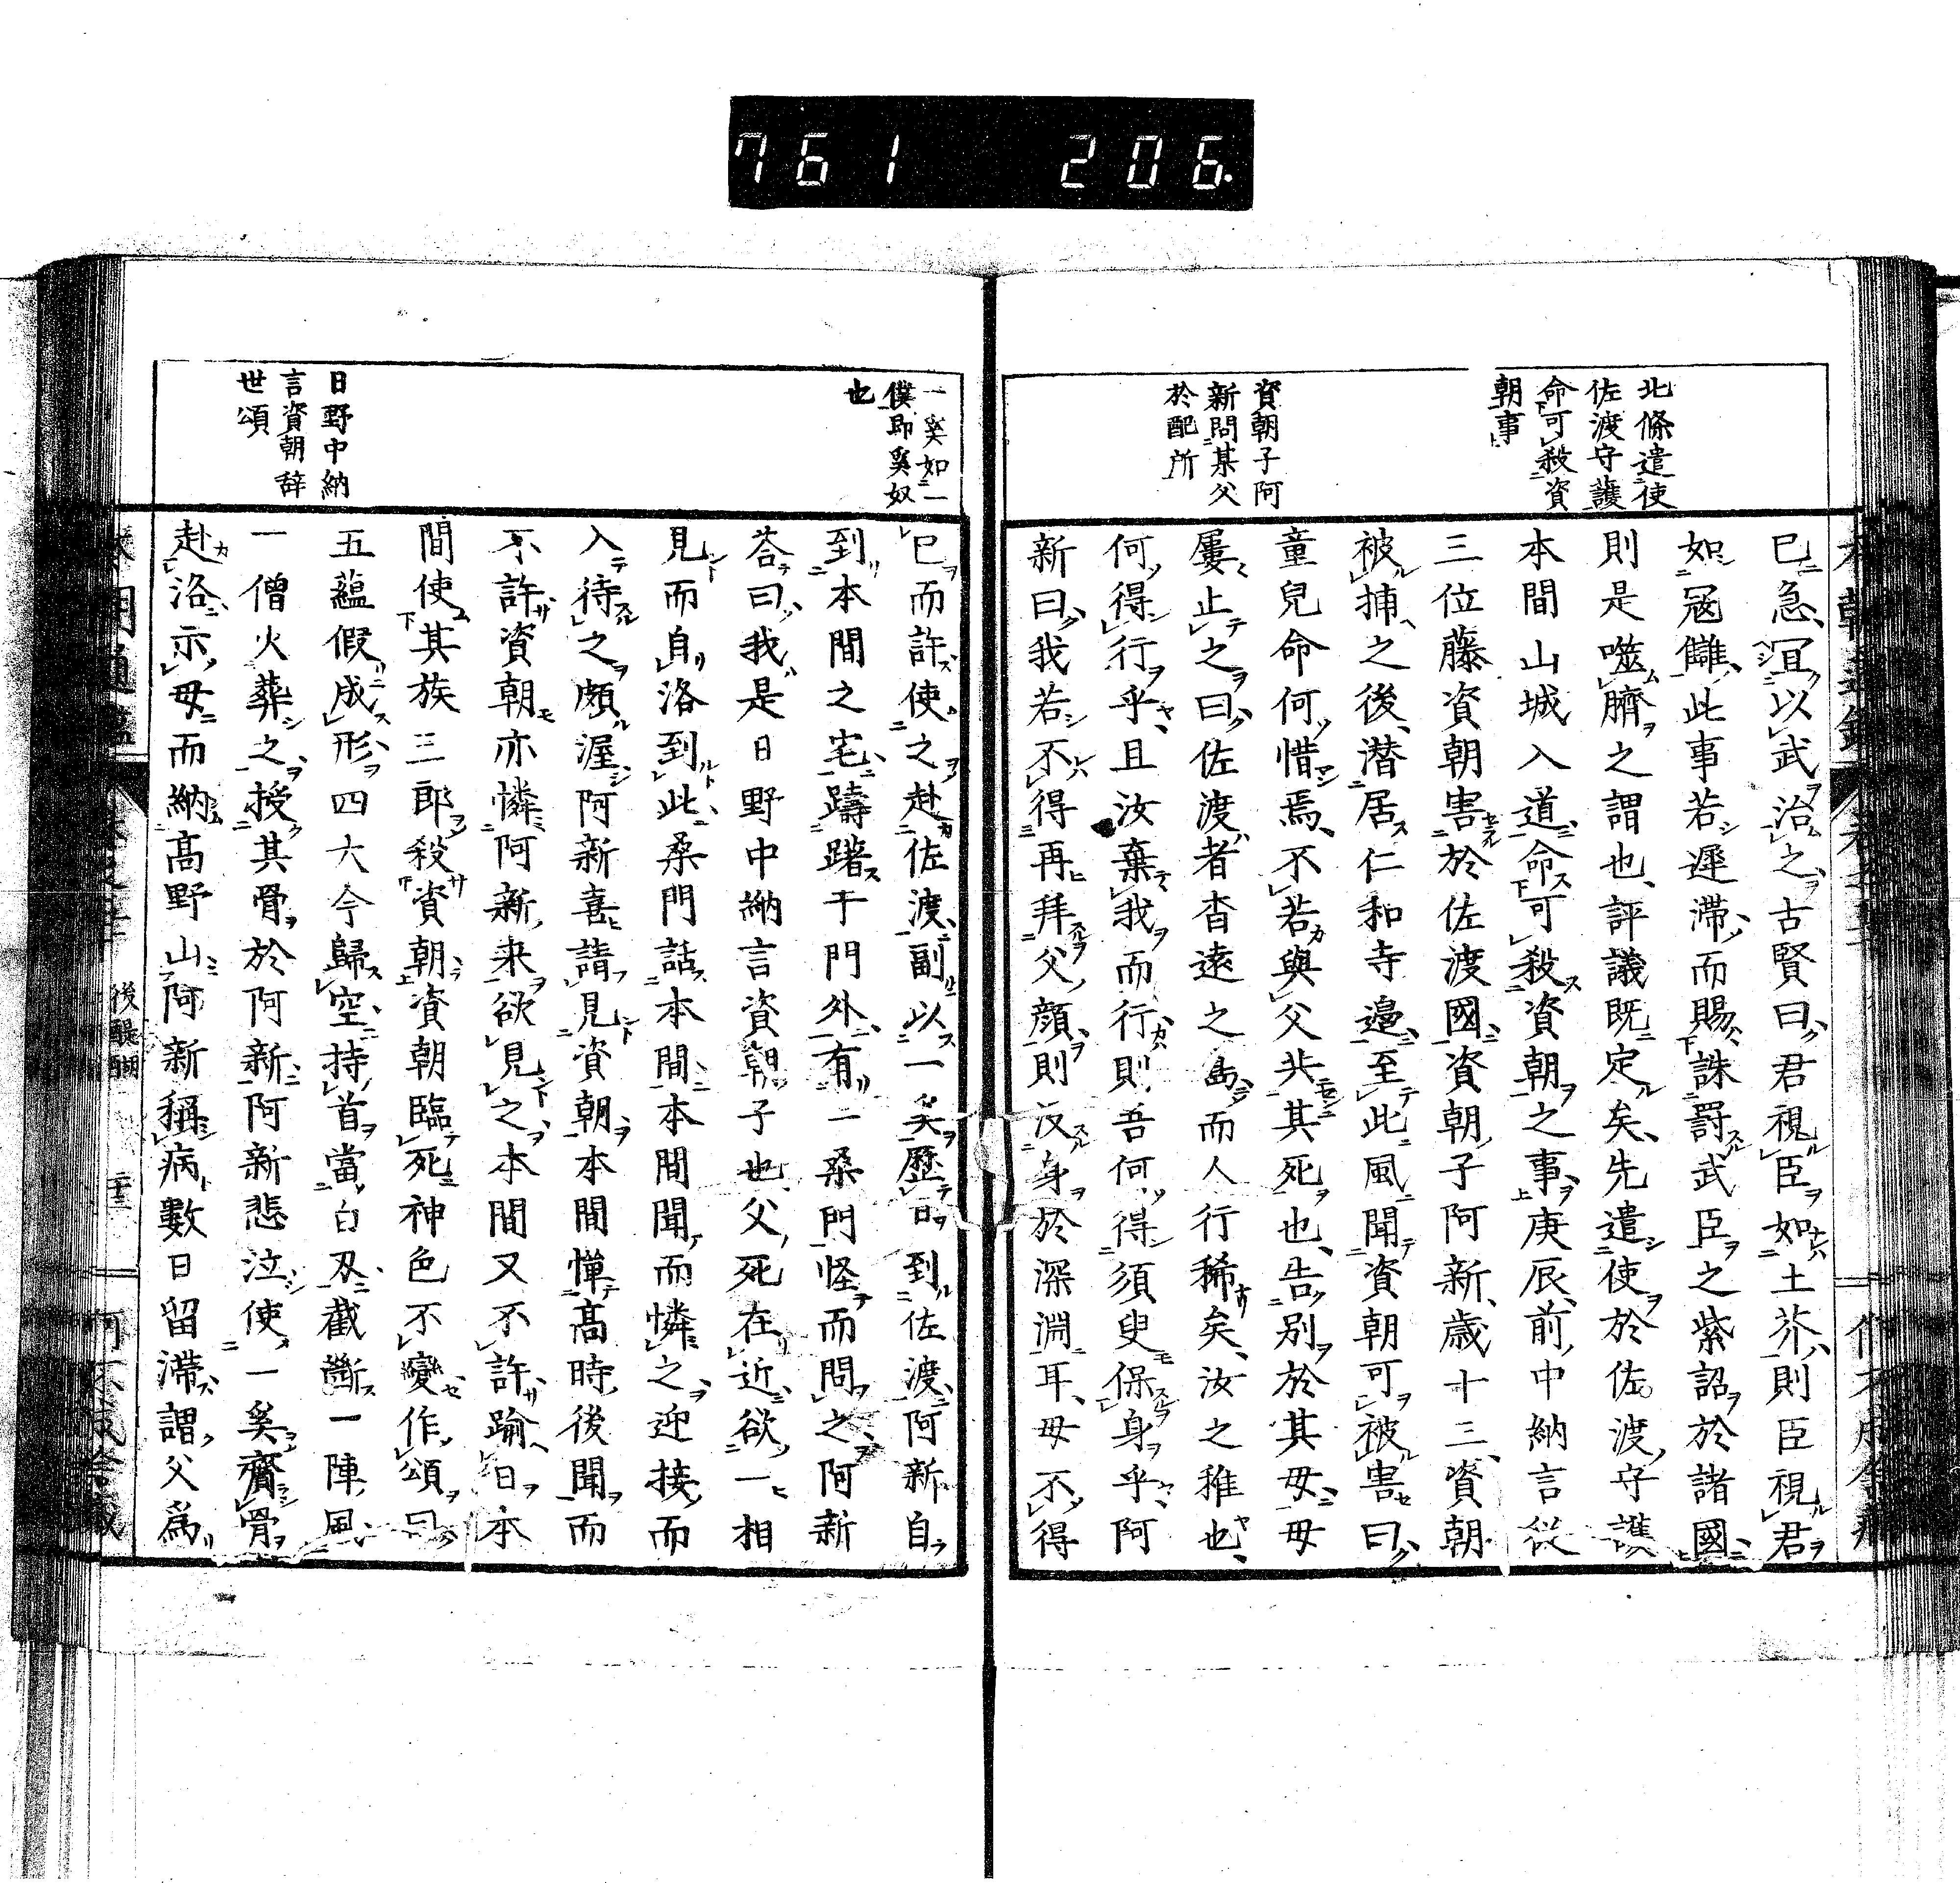 761 206.
北條遣使
佐渡守護
命可殺資
朝事
資朝子阿
新問某父
於配所
已急冝以武治之古賢曰君視臣如土芥則臣視君
如冦讎此事若遲滯而賜誅罰武臣之紫詔於諸國
則是噬臍之謂也評議既定矣先遣使於佐渡守護
本間山城入道命可殺資朝之事庚辰前中納言從
三位藤資朝害於佐渡國資朝子阿新歳十三資朝
被捕之後潜居仁和寺邉至此風聞資朝可被害曰
童兒命何惜焉不若與父共其死也告別於其毋毋
屢止之曰佐渡者杳遠之島而人行稀矣汝之稚也
何得行乎且汝棄我而行則吾何得須臾保身乎阿
新曰我若不得再拜父顔則沒身於深淵耳毋不得
一奚如一
僕即奚奴
也
日野中納
言資朝辞
世頌
已而許使之赴佐渡副以一奚歷日到佐渡阿新自
到本間之宅躊躇于門外有一桑門怪而問之阿新
荅曰我是日野中納言資朝子也父死在近欲一相
見而自洛到此桑門話本間本間聞而憐之迎接而
入待之頗渥阿新喜請見資朝本間憚髙時後聞而
不許資朝亦憐阿新来欲見之本間又不許踰日本
間使其族三郎殺資朝資朝臨死神色不變作頌曰
五蘊假成形四大今歸空持首當白刄截斷一陣風
一僧火葬之授其骨於阿新阿新悲泣使一奚齎骨
赴洛示毋而納髙野山阿新稱病數日留滯謂父爲
後醍醐